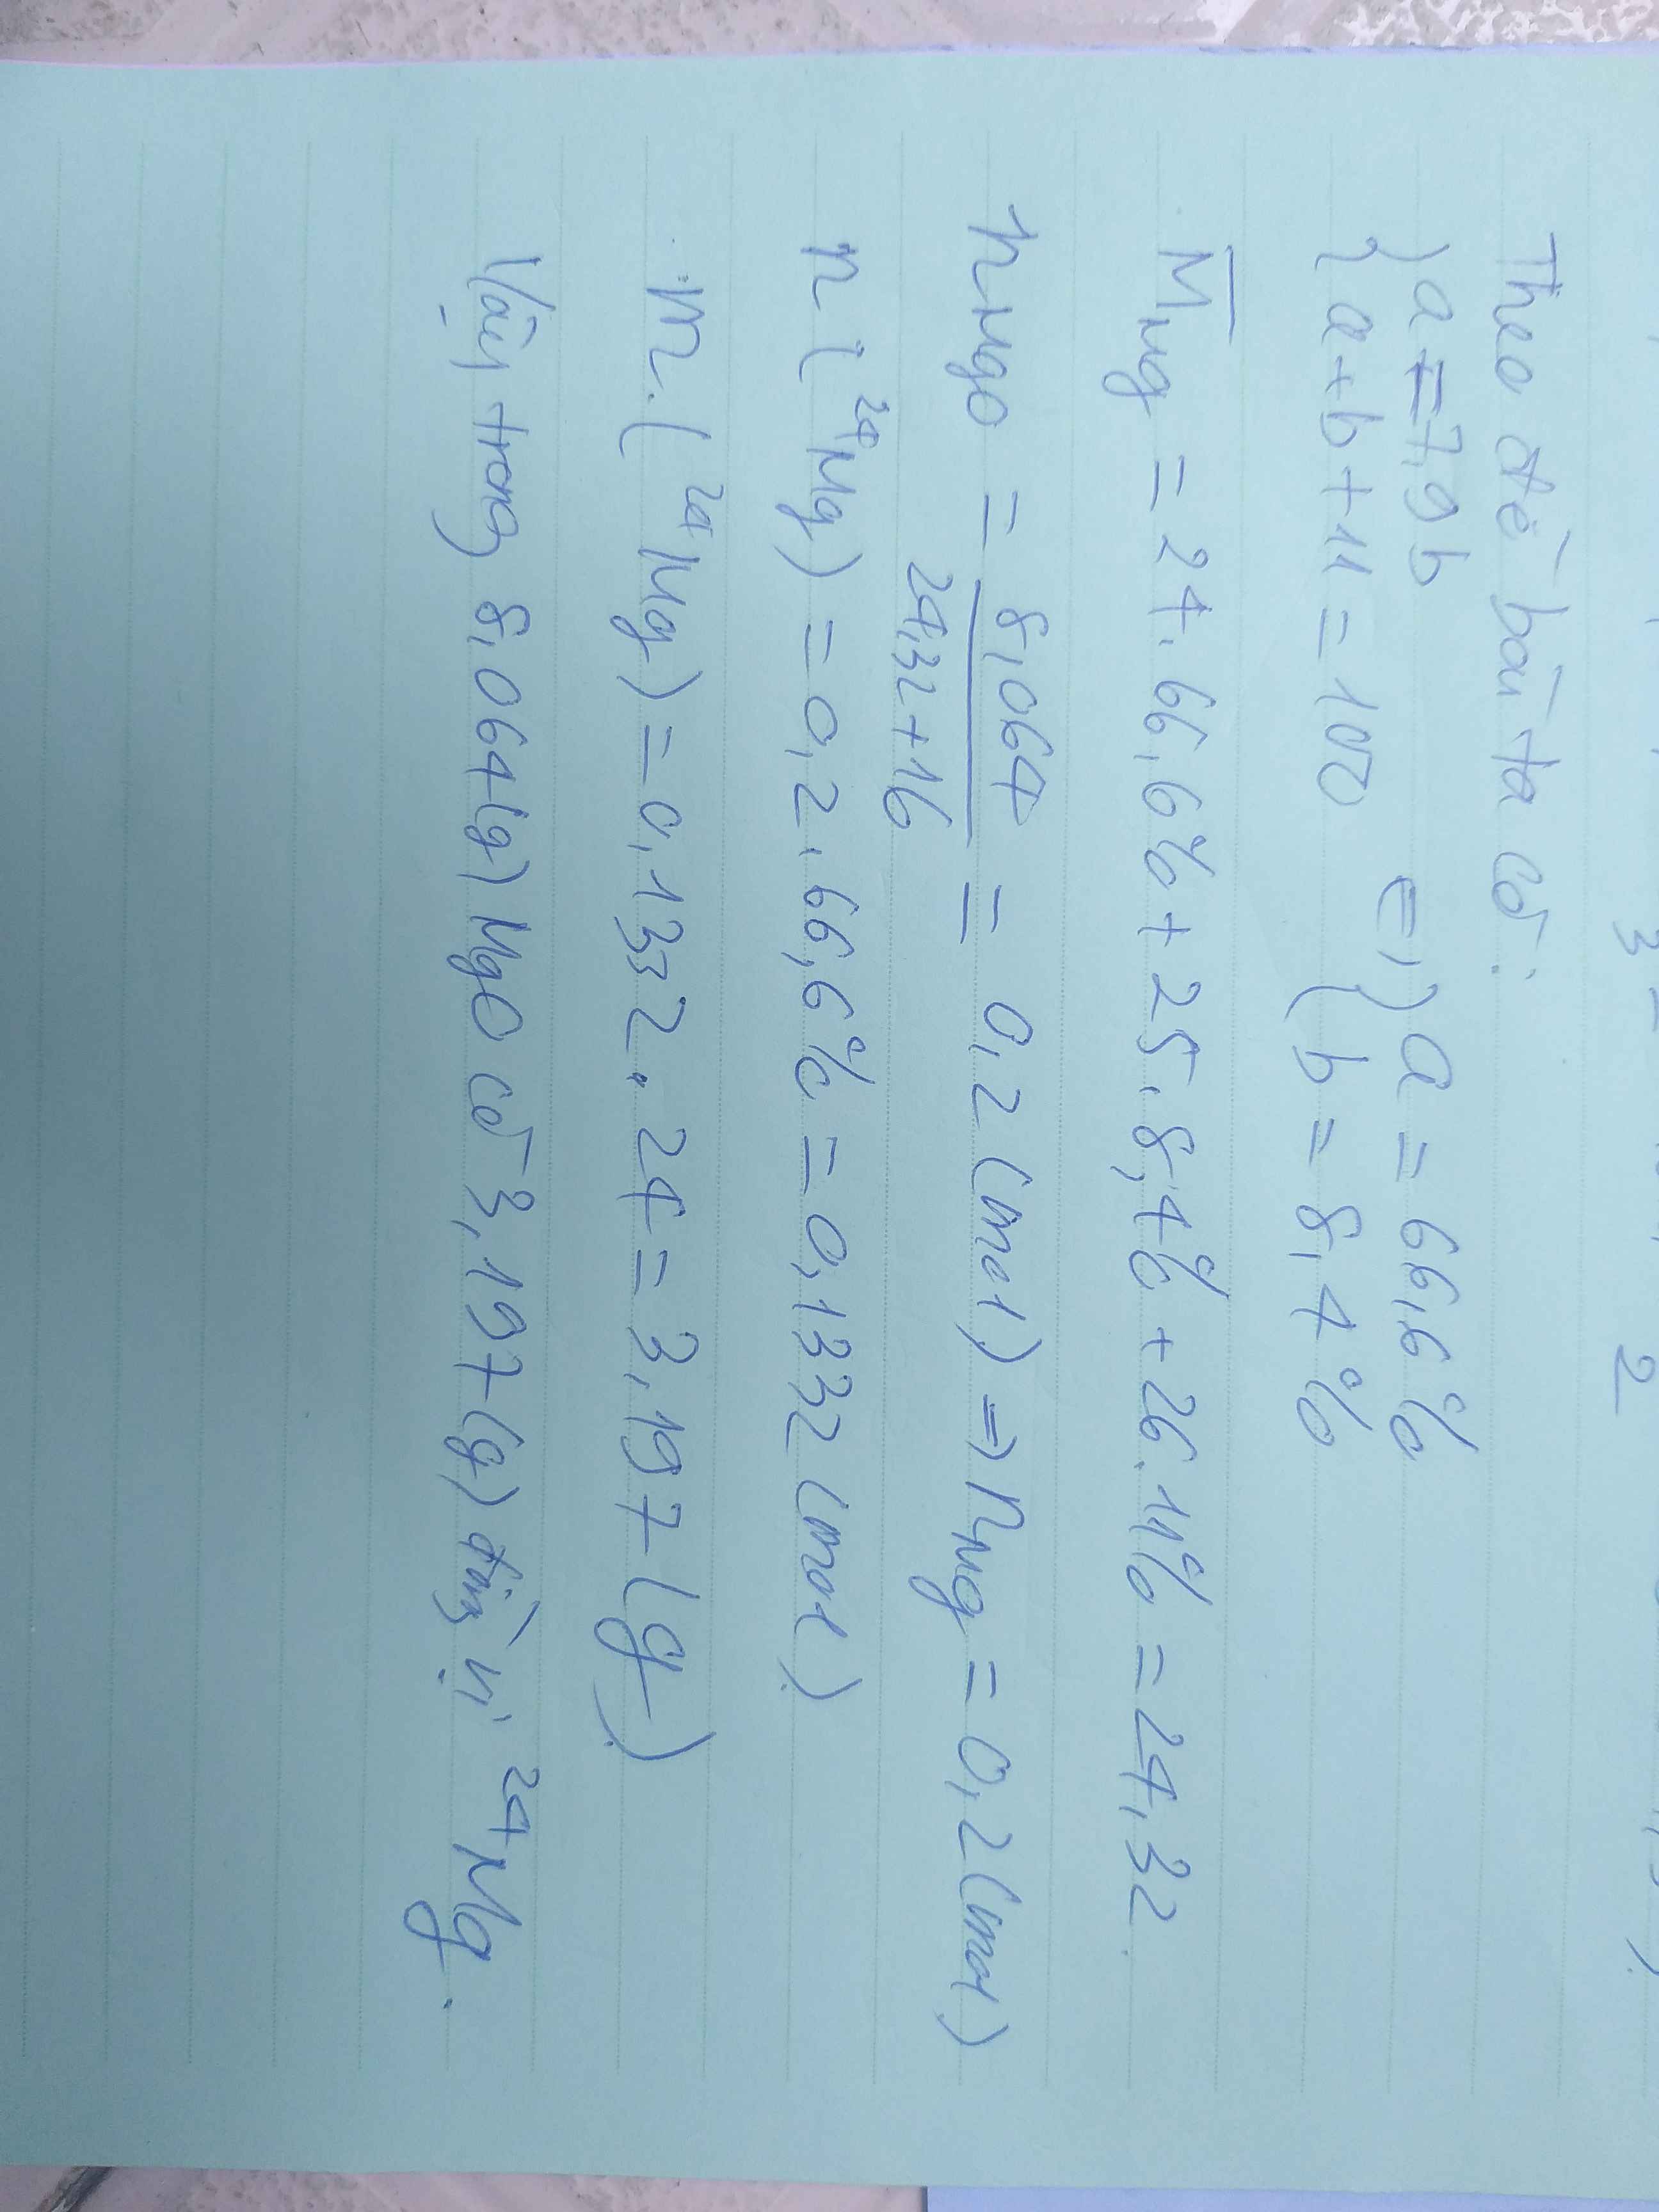 Theo đề bài ta có:
{ a = 7,9b
{ a + b + 11 = 100 => { a = 66,6%
{ b = 8,4%
M̅Mg = 24.66,6% + 25.8,4% + 26.11% = 24,32.
nMgO = 8,064 / 24,32+16 = 0,2 (mol) => nMg = 0,2 (mol)
n (²⁴Mg) = 0,2.66,6% = 0,1332 (mol)
m (²⁴Mg) = 0,1332.24 = 3,197 (g)
Vậy trong 8,064(g) MgO có 3,197 (g) đồng vị ²⁴Mg.